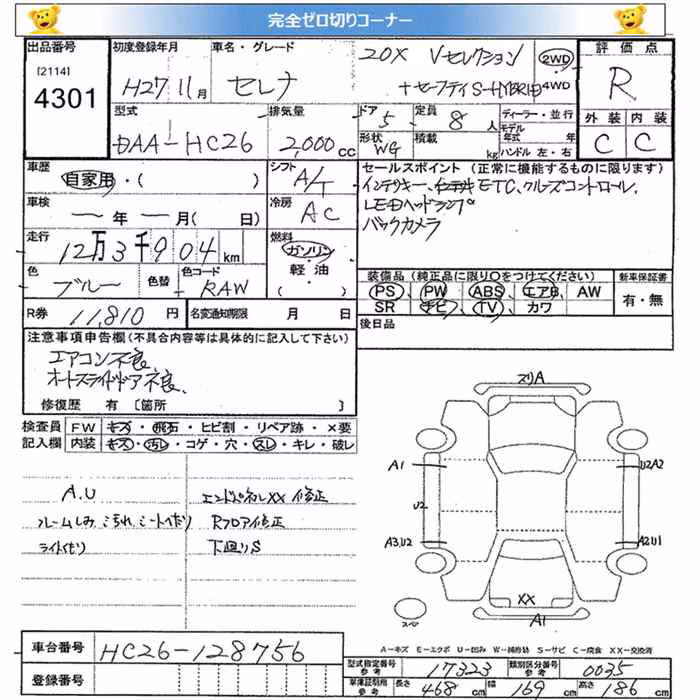 完全ゼロ切りコーナー
出品番号
[2114]
4301
初度登録年月
H27 11月
車名・グレード
セレナ
20X Vセレクション
+セーフティ S-HYBRID
2WD
4WD
評価点
R
外装 内装
C C
型式
DAA-HC26
排気量
2,000cc
ドア
5
定員
8人
形状
WG
積載
kg
ディーラー・並行
モデル年式 年
ハンドル 左・右
車歴
自家用・( )
シフト
A/T
車検
ー年ー月( 日)
冷房
AC
走行
12万3千904km
燃料
ガソリン
軽・油
( )
色
ブルー
色替
色コード
RAW
R券 11,810円
名変通知期限 月 日
セールスポイント(正常に機能するものに限ります)
インテリキー、ETC、クルーズコントロール、
LEDヘッドランプ
バックカメラ
装備品(純正品に限り○をつけてください)
PS PW ABS エアB AW
SR ナビ TV カワ
新車保証書
有・無
後日品
注意事項申告欄(不具合内容等は具体的に記入して下さい)
エアコン不良、
オートスライドドア不良、
修復歴 有〔箇所 〕
検査員記入欄
FW キズ・飛石・ヒビ割・リペア跡・×要
内装 キズ・汚レ・コゲ・穴・スレ・キレ・破レ
A.U
エンドパネルXX修正
ルームしみ、汚れ、シートへたり
Rフロア修正
ライトくもり
下廻りS
スリA
A1
U2A2
U2
A3U2
A2U1
XX
A1
スペア
A-キズ E-エクボ U-凹み W-補修跡 S-サビ C-腐食 XX-交換済
車台番号
HC26-128756
登録番号
型式指定番号
17323
類別区分番号
0035
車庫証明用
長さ 468cm
幅 169cm
高さ 186cm